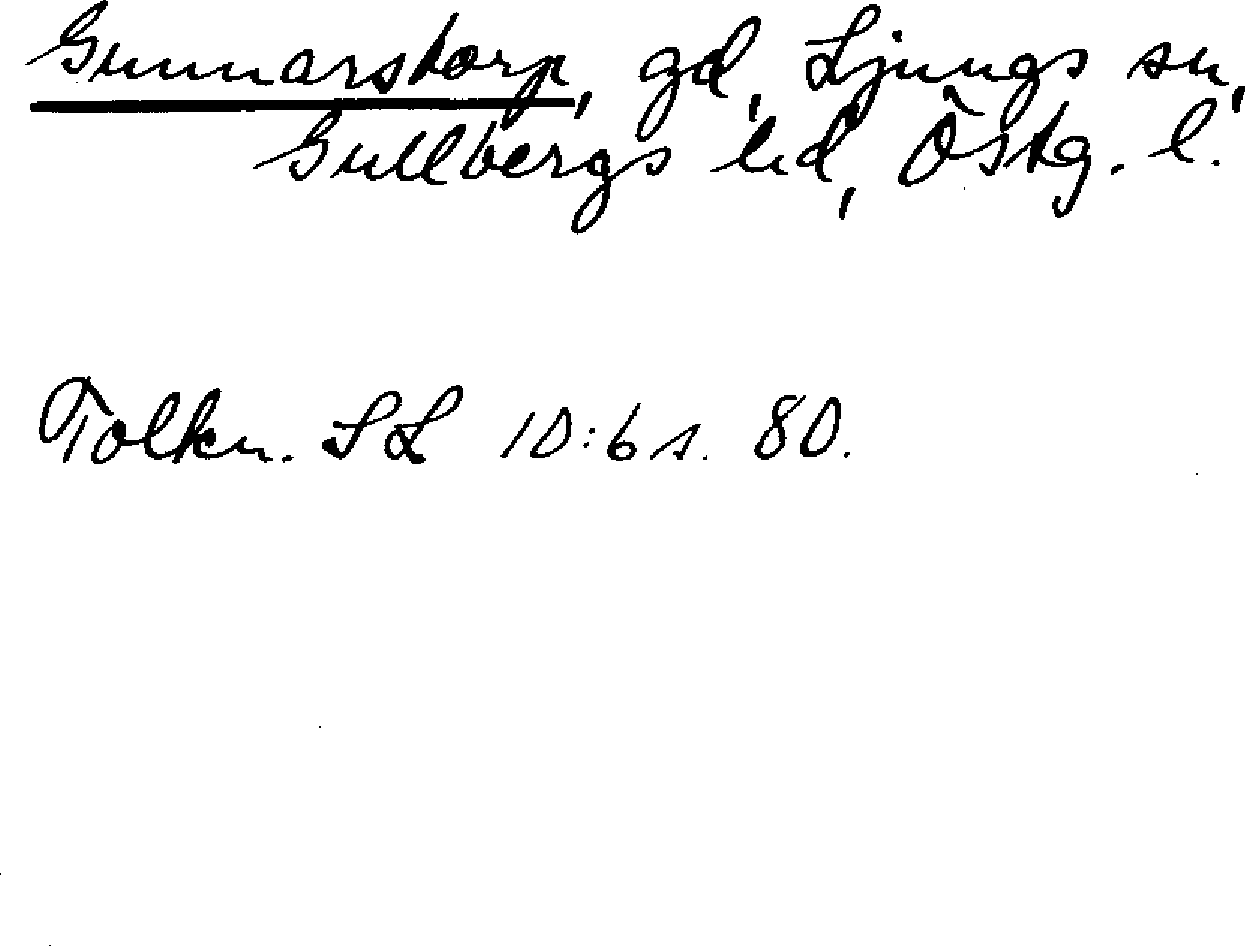 Gunnarstorp, gd, Ljungs sn,
Gullbergs hd, Östg. l.
Tolkn. SL 10:6 s. 80.